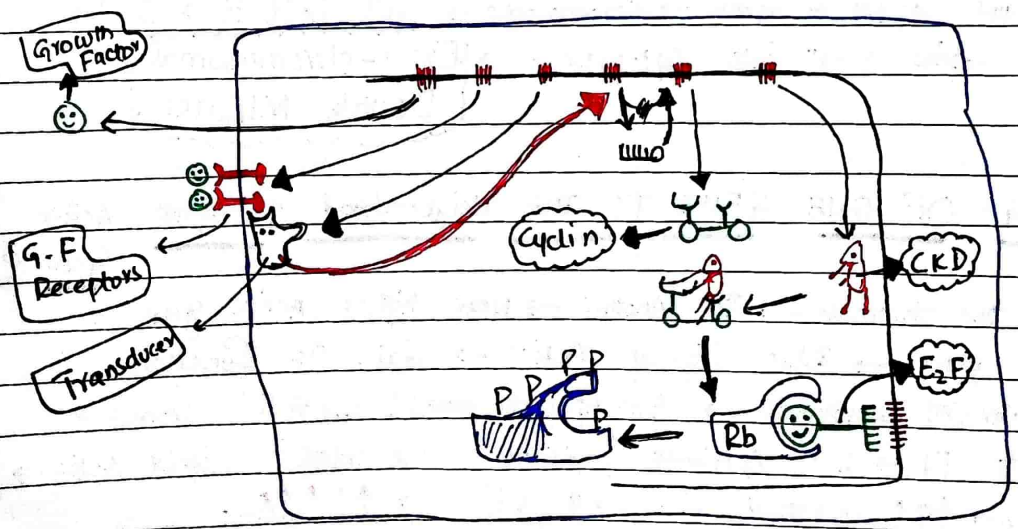 Growth
Factor
G.F
Receptors
Transducer
Cyclin
CKD
E2F
Rb
P P P P
P